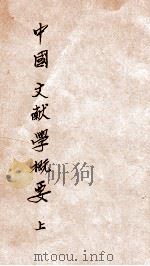 中國文獻學概要
上
mtoou.info